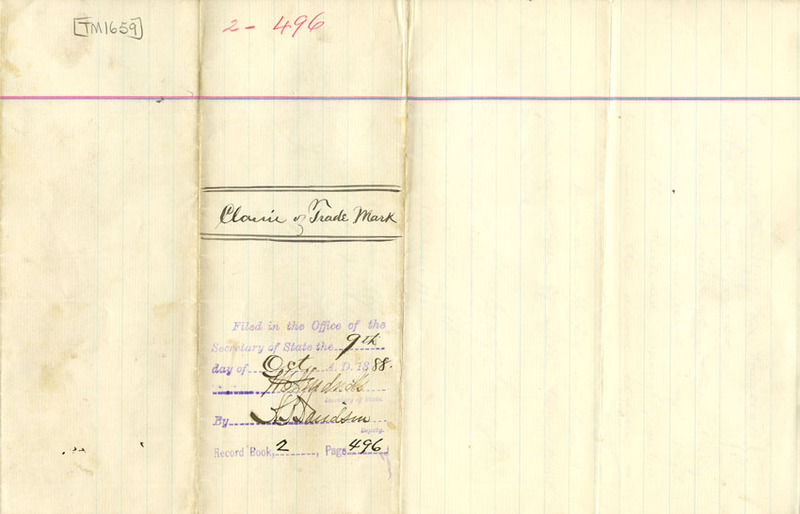 [TM1659]
2 - 496
Claim of Trade Mark
Filed in the Office of the
Secretary of State the 9th
day of Oct A. D. 1888.
Secretary of State.
By Davidson
Deputy.
Record Book, 2, Page 496